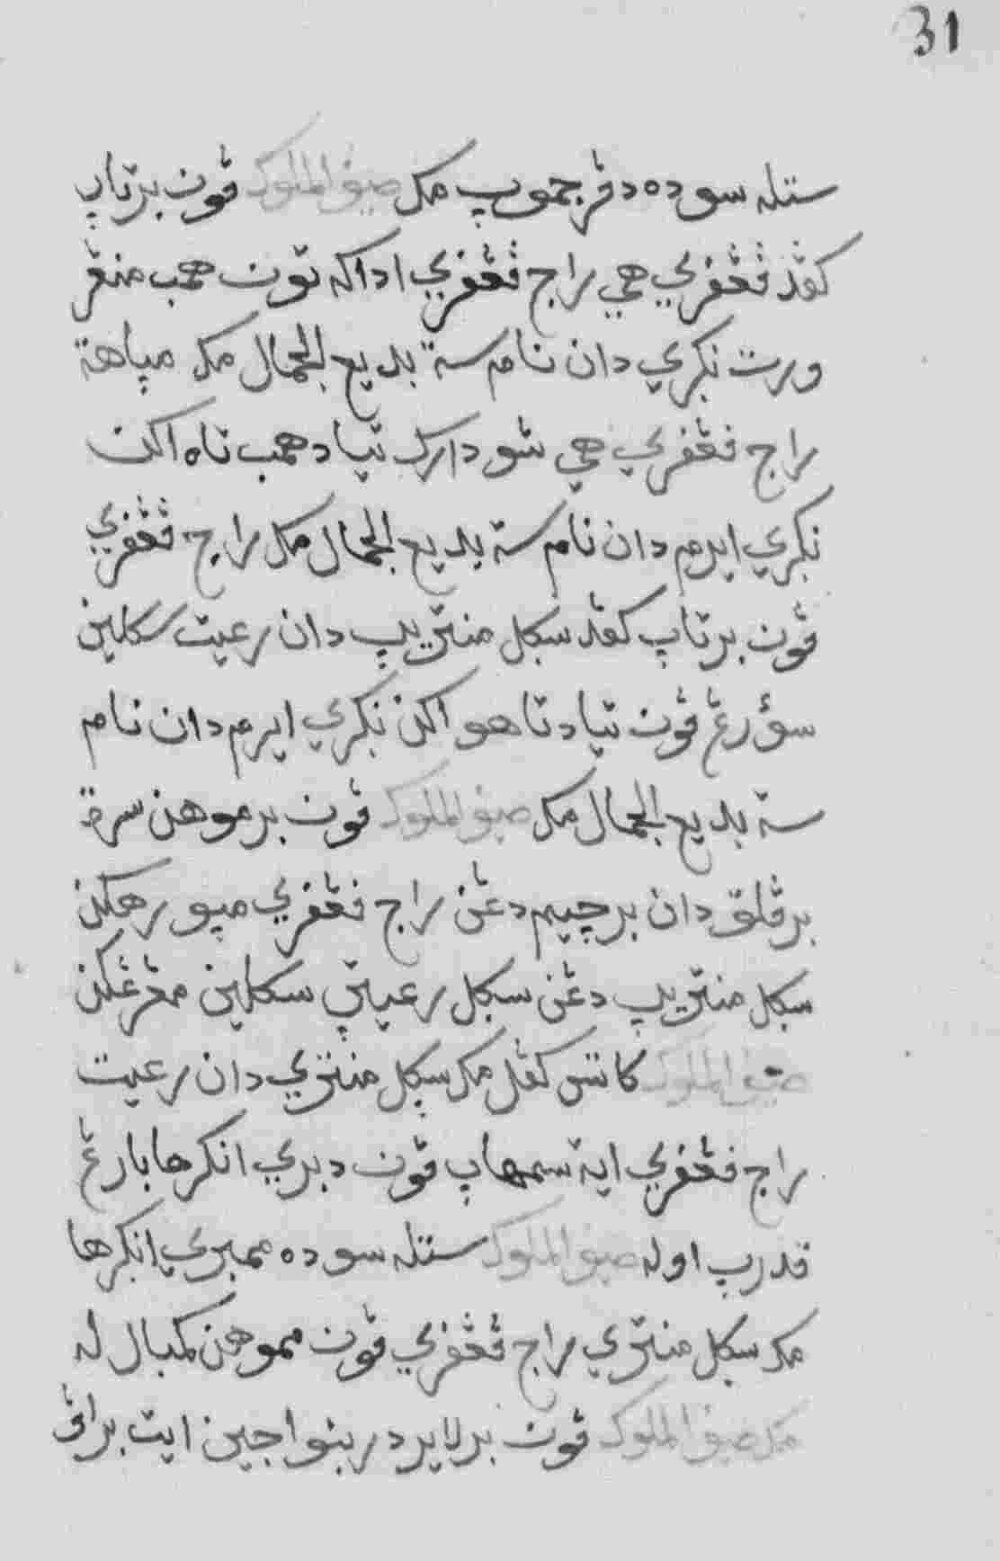 31
ستله سوده دڤرجموڽ مک صيف الملوک ڤون برتاڽ
کڤد ڤڠڤري هي راج ڤڠڤري اداکه تون همب منڠر
ورت نݢري دان نام ستي بديع الجمال مک سهاهت
راج ڤڠڤري هي سودارک تياد همب تاه اکن
نݢري ايرم دان نام ستي بديع الجمال مک راج ڤڠڤري
ڤون برتاڽ کڤد سکل منتريڽ دان رعيت سکلين
سؤرڠ ڤون تياد تاهو اکن نݢري ايرم دان نام
ستي بديع الجمال مک صيف الملوک ڤون برموهن سرت
برڤلق دان برچيم دڠن راج ڤڠڤري مپورهکن
سکل منتريڽ دڠن سکل رعيتڽ سکلين مڠرڠکن
صيف الملوک کاتس کڤل مک سکل منتري دان رعيت
راج ڤڠڤري ايت سمهاڽ ڤون دبري انکرها بارڠ
قدرڽ اوله صيف الملوک ستله سوده ممبري انکرها
مک سکل منتري راج ڤڠڤري ڤون مموهن کمبال له
مک صيف الملوک ڤون برلاير در بنوا جين ايت براڤ